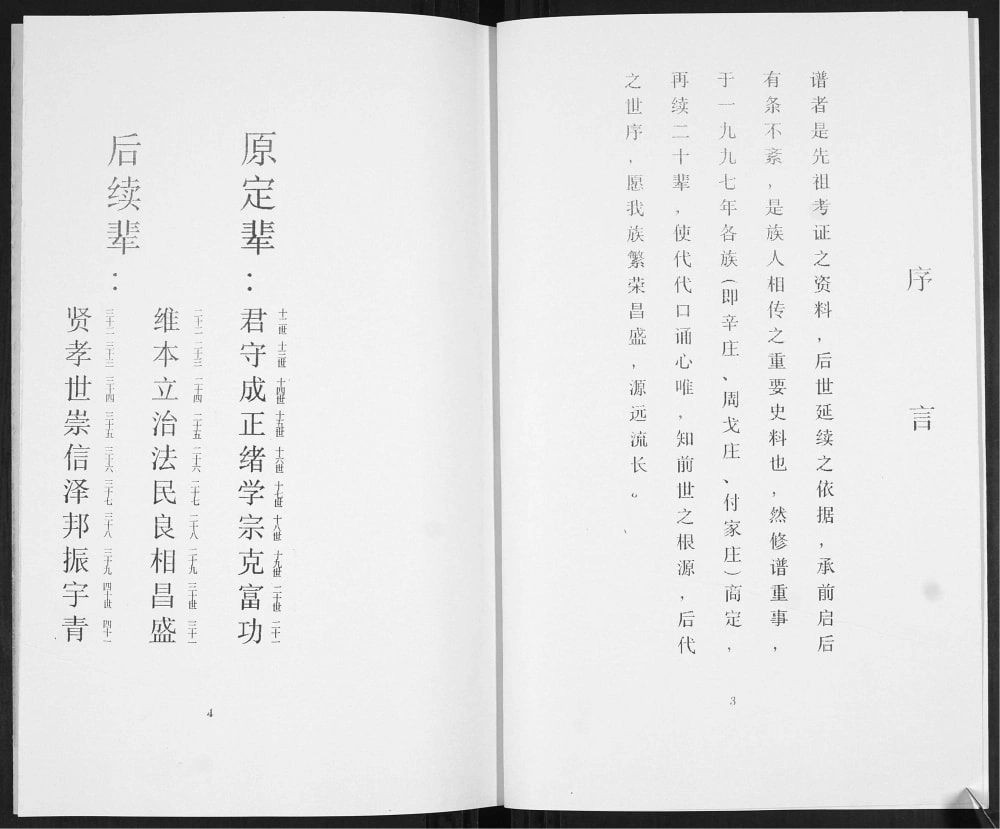 序言
谱者是先祖考证之资料，后世延续之依据，承前启后
有条不紊，是族人相传之重要史料也，然修谱重事，
于一九九七年各族（即辛庄、周戈庄、付家庄）商定，
再续二十辈，使代代口诵心唯，知前世之根源，后代
之世序，愿我族繁荣昌盛，源远流长。
3
原定辈：
十二世 十三世 十四世 十五世 十六世 十七世 十八世 十九世 二十世 二十一
君守成正绪学宗克富功
后续辈：
二十二 二十三 二十四 二十五 二十六 二十七 二十八 二十九 三十世 三十一
维本立治法民良相昌盛
三十二 三十三 三十四 三十五 三十六 三十七 三十八 三十九 四十世 四十一
贤孝世崇信泽邦振宇青
4